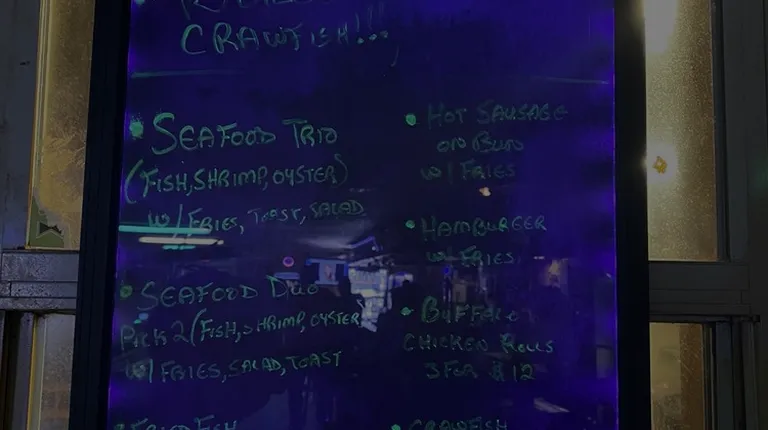 CRAWFISH!!!
• SEAFOOD TRIO
(FISH, SHRIMP, OYSTER)
W/ FRIES, TOAST, SALAD
• SEAFOOD DUO
PICK 2 (FISH, SHRIMP, OYSTER)
W/ FRIES, SALAD, TOAST
FRIED FISH
• HOT SAUSAGE
ON BUN
W/ FRIES
• HAMBURGER
W/ FRIES
• BUFFALO
CHICKEN ROLLS
3 FOR $12
• CRAWFISH